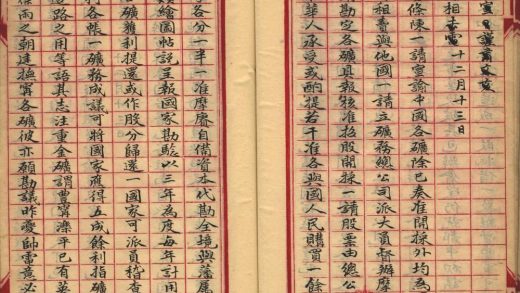 十二月十三日
條陳一請電諭中國各礦除已奏准開採外均為
租賣與他國一請立礦務總公司派大員督辦摩
勘定各礦具報核准招股開採一請股票由總公
華人承受或酌提若干准各與國人民購買一餘
各分一半一准摩賡自借資本代勘全境與藩屬
繪圖帖說呈報國家勘驗以三年為度每年計用
礦獲利提還或作股分歸還一國家可派員稽查
利各帳一礦務成議可將國家應得五成餘利指礦
路之用等語其志注重全礦謂豐灤平已有英
之朝達各礦彼亦願勘議昨帥電意必